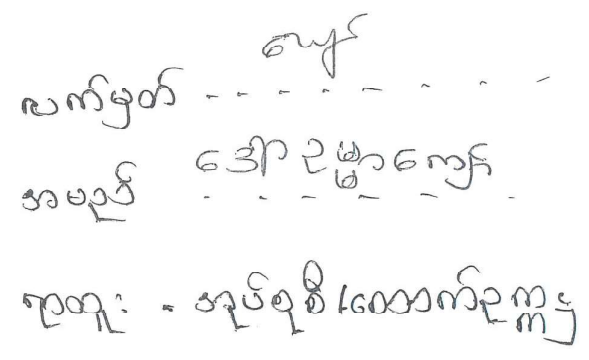 လက်မှတ် - - - - - - - -
အမည် ဒေါ်ဥမ္မာကျော်
ရာထူး - အုပ်စုစီ/ထောက်ဥက္ကဋ္ဌ